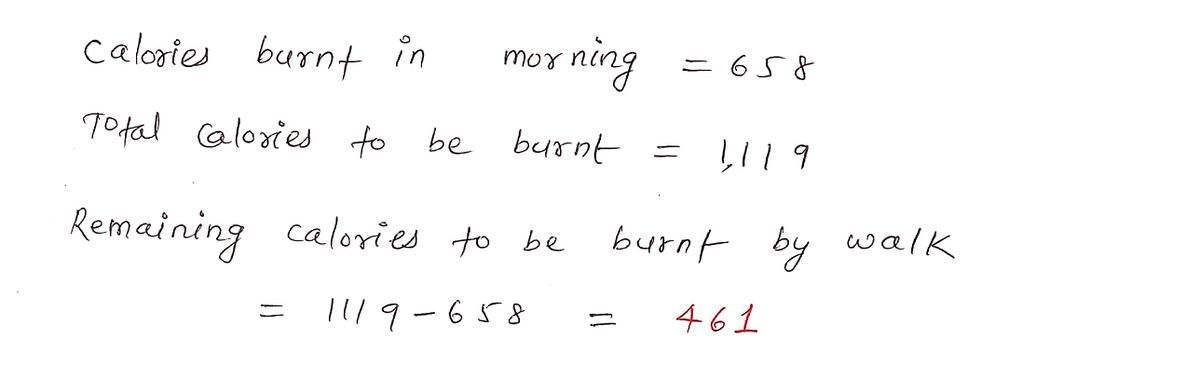 Calories burnt in morning = 658
Total Calories to be burnt = 1,119
Remaining calories to be burnt by walk
= 1119 - 658 = 461